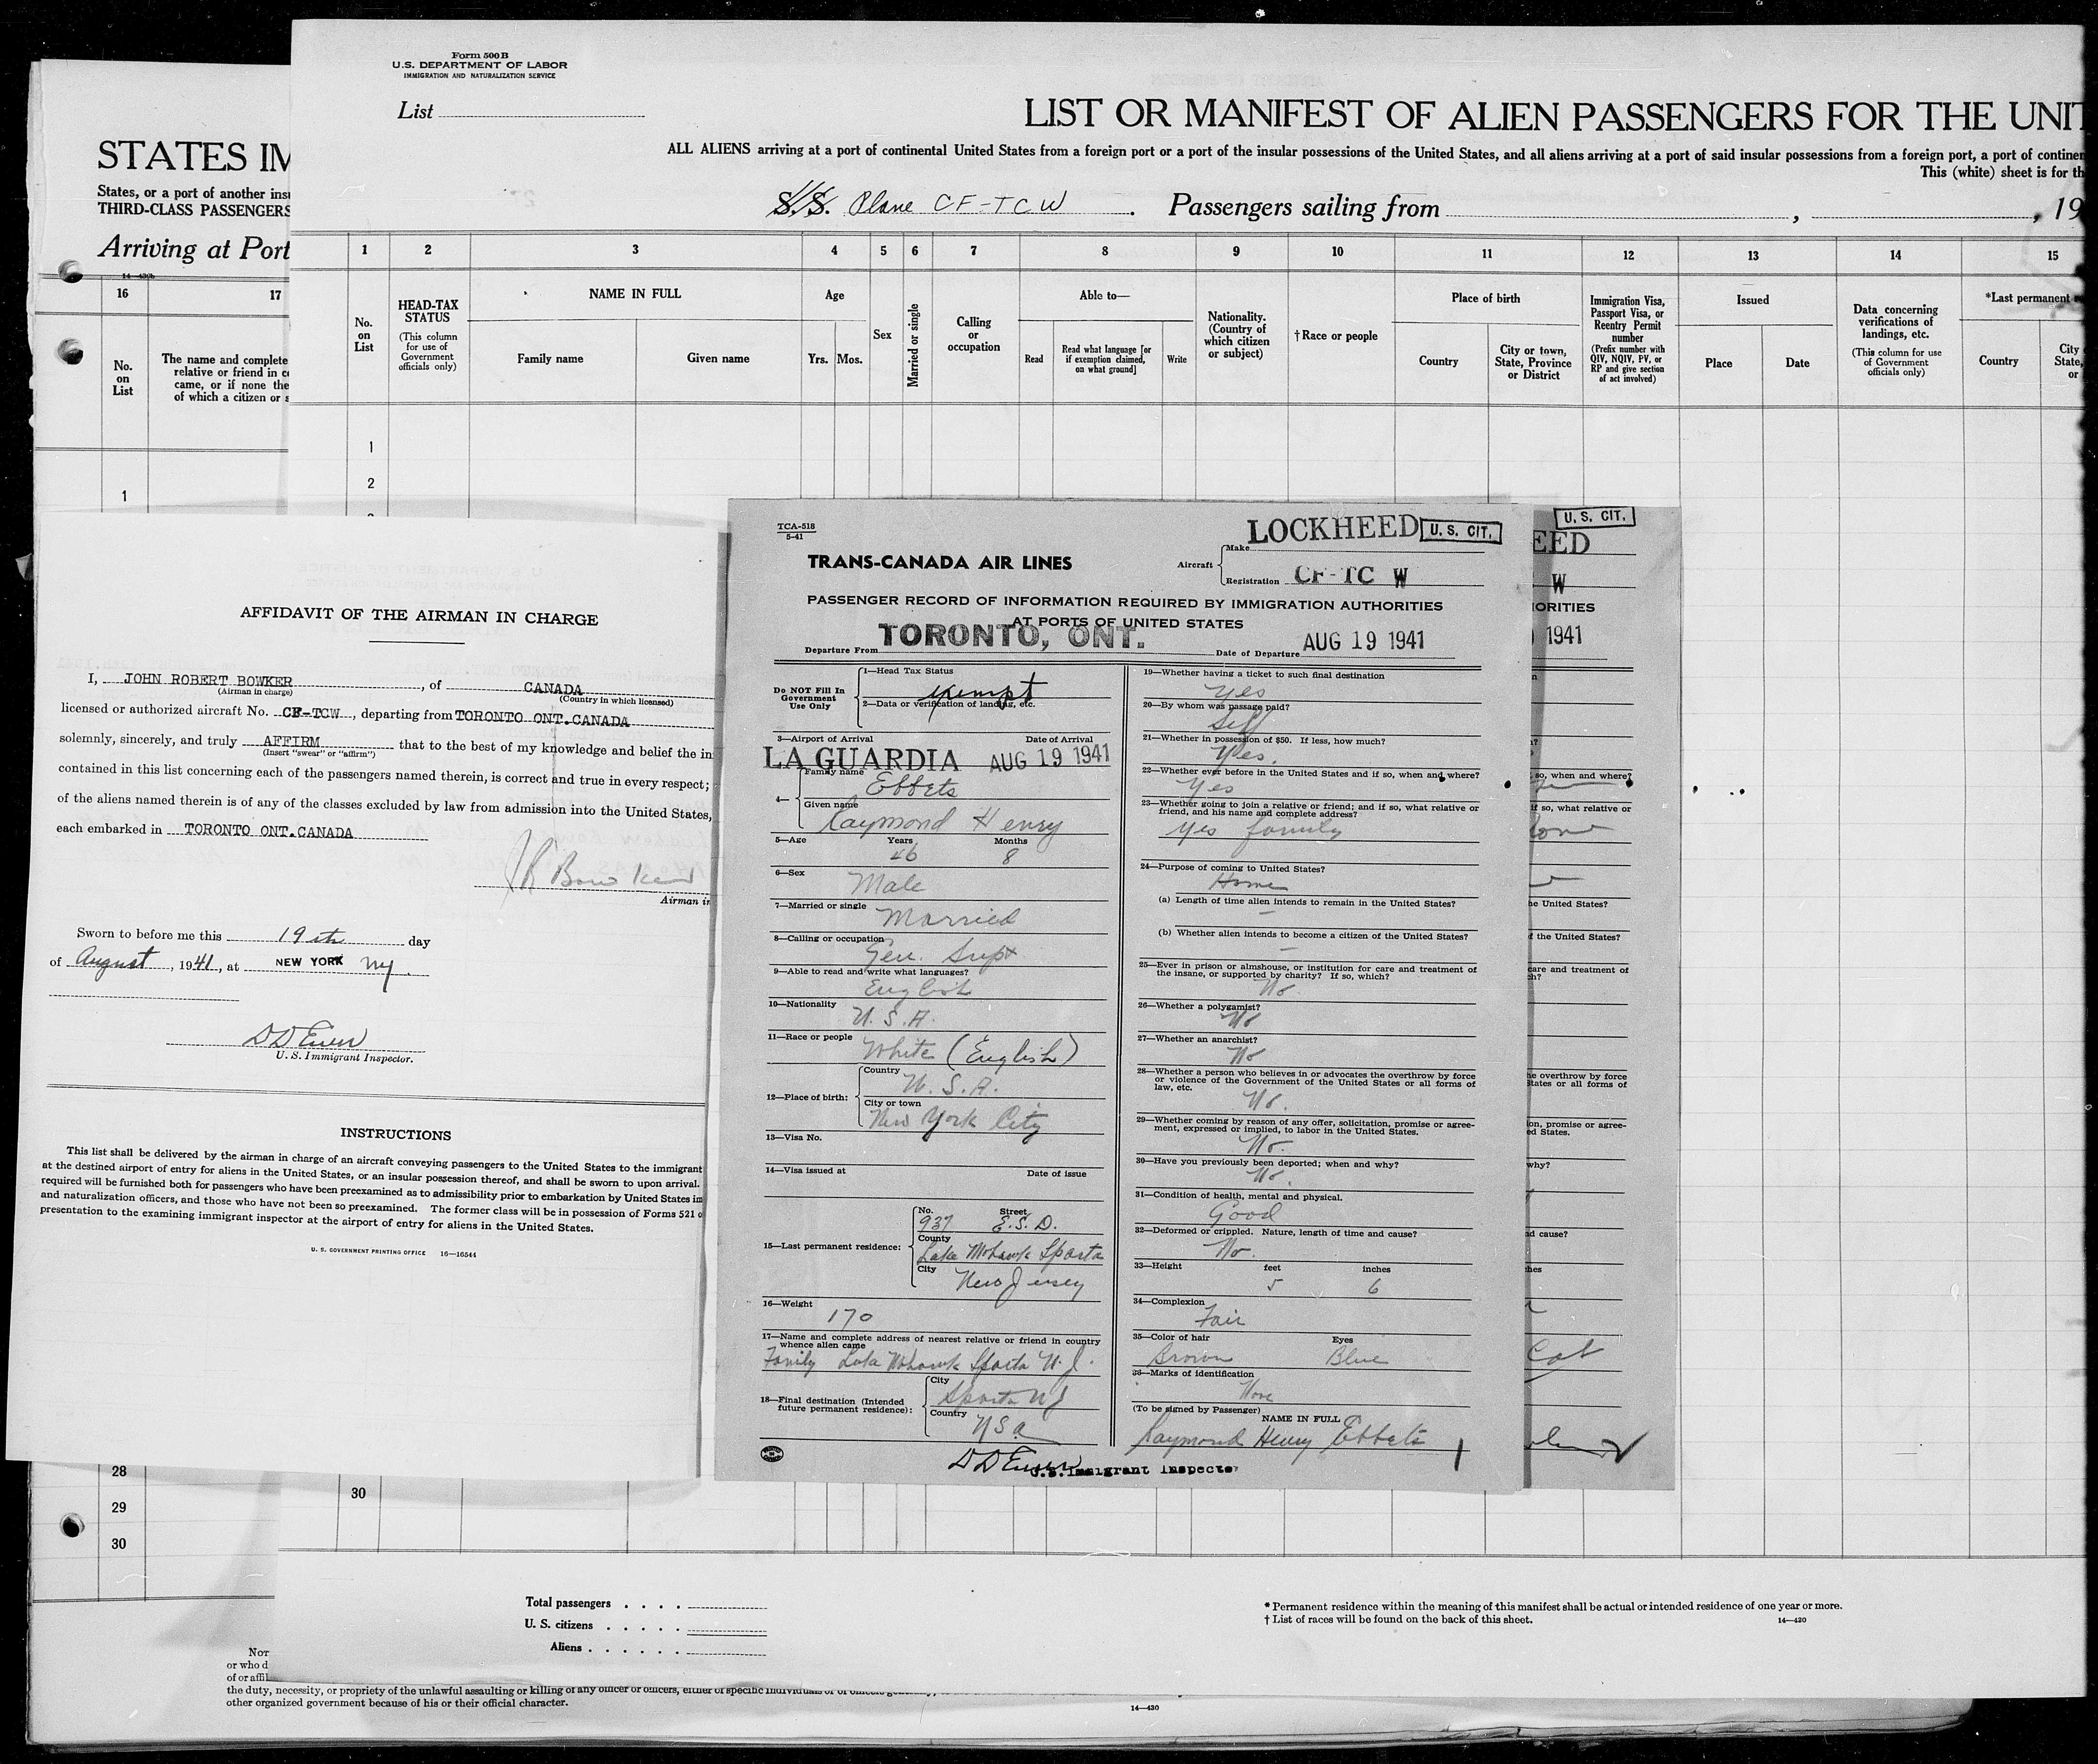 Form 500B
U.S. DEPARTMENT OF LABOR
IMMIGRATION AND NATURALIZATION SERVICE
List
LIST OR MANIFEST OF ALIEN PASSENGERS FOR THE UNIT
ALL ALIENS arriving at a port of continental United States from a foreign port or a port of the insular possessions of the United States, and all aliens arriving at a port of said insular possessions from a foreign port, a port of continen
This (white) sheet is for th
S.S. Plane CF-TCW . Passengers sailing from , , 19
STATES IM
States, or a port of another insu
THIRD-CLASS PASSENGERS
Arriving at Port
14-430b
16 17
No. on List
The name and complete
relative or friend in c
came, or if none the
of which a citizen or s
1
1 2 3 4 5 6 7 8 9 10 11 12 13 14 15
No. on List
HEAD-TAX STATUS
(This column for use of Government officials only)
NAME IN FULL
Family name Given name
Age
Yrs. Mos.
Sex
Married or single
Calling or occupation
Able to—
Read
Read what language [or if exemption claimed, on what ground]
Write
Nationality. (Country of which citizen or subject)
†Race or people
Place of birth
Country
City or town, State, Province or District
Immigration Visa, Passport Visa, or Reentry Permit number
(Prefix number with QIV, NQIV, PV, or RP and give section of act involved)
Issued
Place Date
Data concerning verifications of landings, etc.
(This column for use of Government officials only)
*Last permanent
Country
City
State,
or
1
2
AFFIDAVIT OF THE AIRMAN IN CHARGE
I, JOHN ROBERT BOWKER , of CANADA
(Airman in charge) (Country in which licensed)
licensed or authorized aircraft No. CF-TCW , departing from TORONTO ONT.CANADA
solemnly, sincerely, and truly AFFIRM that to the best of my knowledge and belief the in
(Insert "swear" or "affirm")
contained in this list concerning each of the passengers named therein, is correct and true in every respect;
of the aliens named therein is of any of the classes excluded by law from admission into the United States,
each embarked in TORONTO ONT.CANADA
J R Bowker
Airman in
Sworn to before me this 19th day
of August , 1941 , at NEW YORK NY.
U. S. Immigrant Inspector.
INSTRUCTIONS
This list shall be delivered by the airman in charge of an aircraft conveying passengers to the United States to the immigrant
at the destined airport of entry for aliens in the United States, or an insular possession thereof, and shall be sworn to upon arrival.
required will be furnished both for passengers who have been preexamined as to admissibility prior to embarkation by United States im
and naturalization officers, and those who have not been so preexamined. The former class will be in possession of Forms 521 o
presentation to the examining immigrant inspector at the airport of entry for aliens in the United States.
U. S. GOVERNMENT PRINTING OFFICE 16—16544
TCA-518
5-41
TRANS-CANADA AIR LINES
Aircraft
Make LOCKHEED
U. S. CIT.
Registration CF-TC W
PASSENGER RECORD OF INFORMATION REQUIRED BY IMMIGRATION AUTHORITIES
AT PORTS OF UNITED STATES
Departure From TORONTO, ONT. Date of Departure AUG 19 1941
Do NOT Fill In Government Use Only
1—Head Tax Status
exempt
2—Data or verification of landing, etc.
3—Airport of Arrival Date of Arrival
LA GUARDIA AUG 19 1941
4—
Family name Ebbets
Given name Raymond Henry
5—Age Years 46 Months 8
6—Sex Male
7—Married or single Married
8—Calling or occupation Gen. Supt
9—Able to read and write what languages?
English
10—Nationality U.S.A.
11—Race or people White (English)
12—Place of birth:
Country U.S.A.
City or town New York City
13—Visa No.
14—Visa issued at Date of issue
15—Last permanent residence:
No. 937 Street E.S.D.
County Lake Mohawk Sparta
City New Jersey
16—Weight 170
17—Name and complete address of nearest relative or friend in country
whence alien came
Family Lake Mohawk Sparta N.J.
18—Final destination (Intended future permanent residence):
City Sparta NJ
Country USA
U.S. Immigrant Inspector
19—Whether having a ticket to such final destination
Yes
20—By whom was passage paid?
Self
21—Whether in possession of $50. If less, how much?
Yes.
22—Whether ever before in the United States and if so, when and where?
Yes
23—Whether going to join a relative or friend; and if so, what relative or
friend, and his name and complete address?
Yes family
24—Purpose of coming to United States?
Home
(a) Length of time alien intends to remain in the United States?
—
(b) Whether alien intends to become a citizen of the United States?
—
25—Ever in prison or almshouse, or institution for care and treatment of
the insane, or supported by charity? If so, which?
No.
26—Whether a polygamist?
No
27—Whether an anarchist?
No
28—Whether a person who believes in or advocates the overthrow by force
or violence of the Government of the United States or all forms of
law, etc.
No.
29—Whether coming by reason of any offer, solicitation, promise or agree-
ment, expressed or implied, to labor in the United States.
No.
30—Have you previously been deported; when and why?
No.
31—Condition of health, mental and physical.
Good
32—Deformed or crippled. Nature, length of time and cause?
No.
33—Height feet 5 inches 6
34—Complexion
Fair
35—Color of hair Brown Eyes Blue
36—Marks of identification
None
(To be signed by Passenger) NAME IN FULL
Raymond Henry Ebbets
U. S. CIT.
EED
W
ORITIES
1941
so, when and where?
if so, what relative or
he United States?
f the United States?
care and treatment of
ch?
he overthrow by force
States or all forms of
on, promise or agree-
ed States.
why?
nd cause?
hes
28
29
30
30
Total passengers . . . .
U. S. citizens . . . . .
Aliens . . . . . .
* Permanent residence within the meaning of this manifest shall be actual or intended residence of one year or more.
† List of races will be found on the back of this sheet.
14—420
Not
or who d
of or affil
the duty, necessity, or propriety of the unlawful assaulting or killing of any officer or officers, either of specific individuals or of officers
other organized government because of his or their official character.
14—430